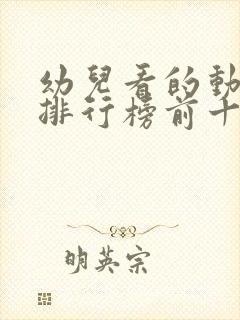 幼兒看的動
排行榜前十
明英宗